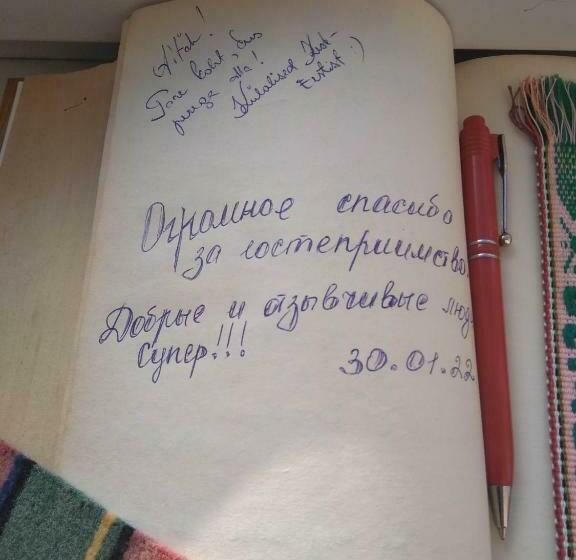 Aitäh!
Tore koht, kus
olla!
Külalised Kesk-
Eestist :)
Огромное спасибо
за гостеприимство
Добрые и отзывчивые люди
Супер!!! 30.01.22